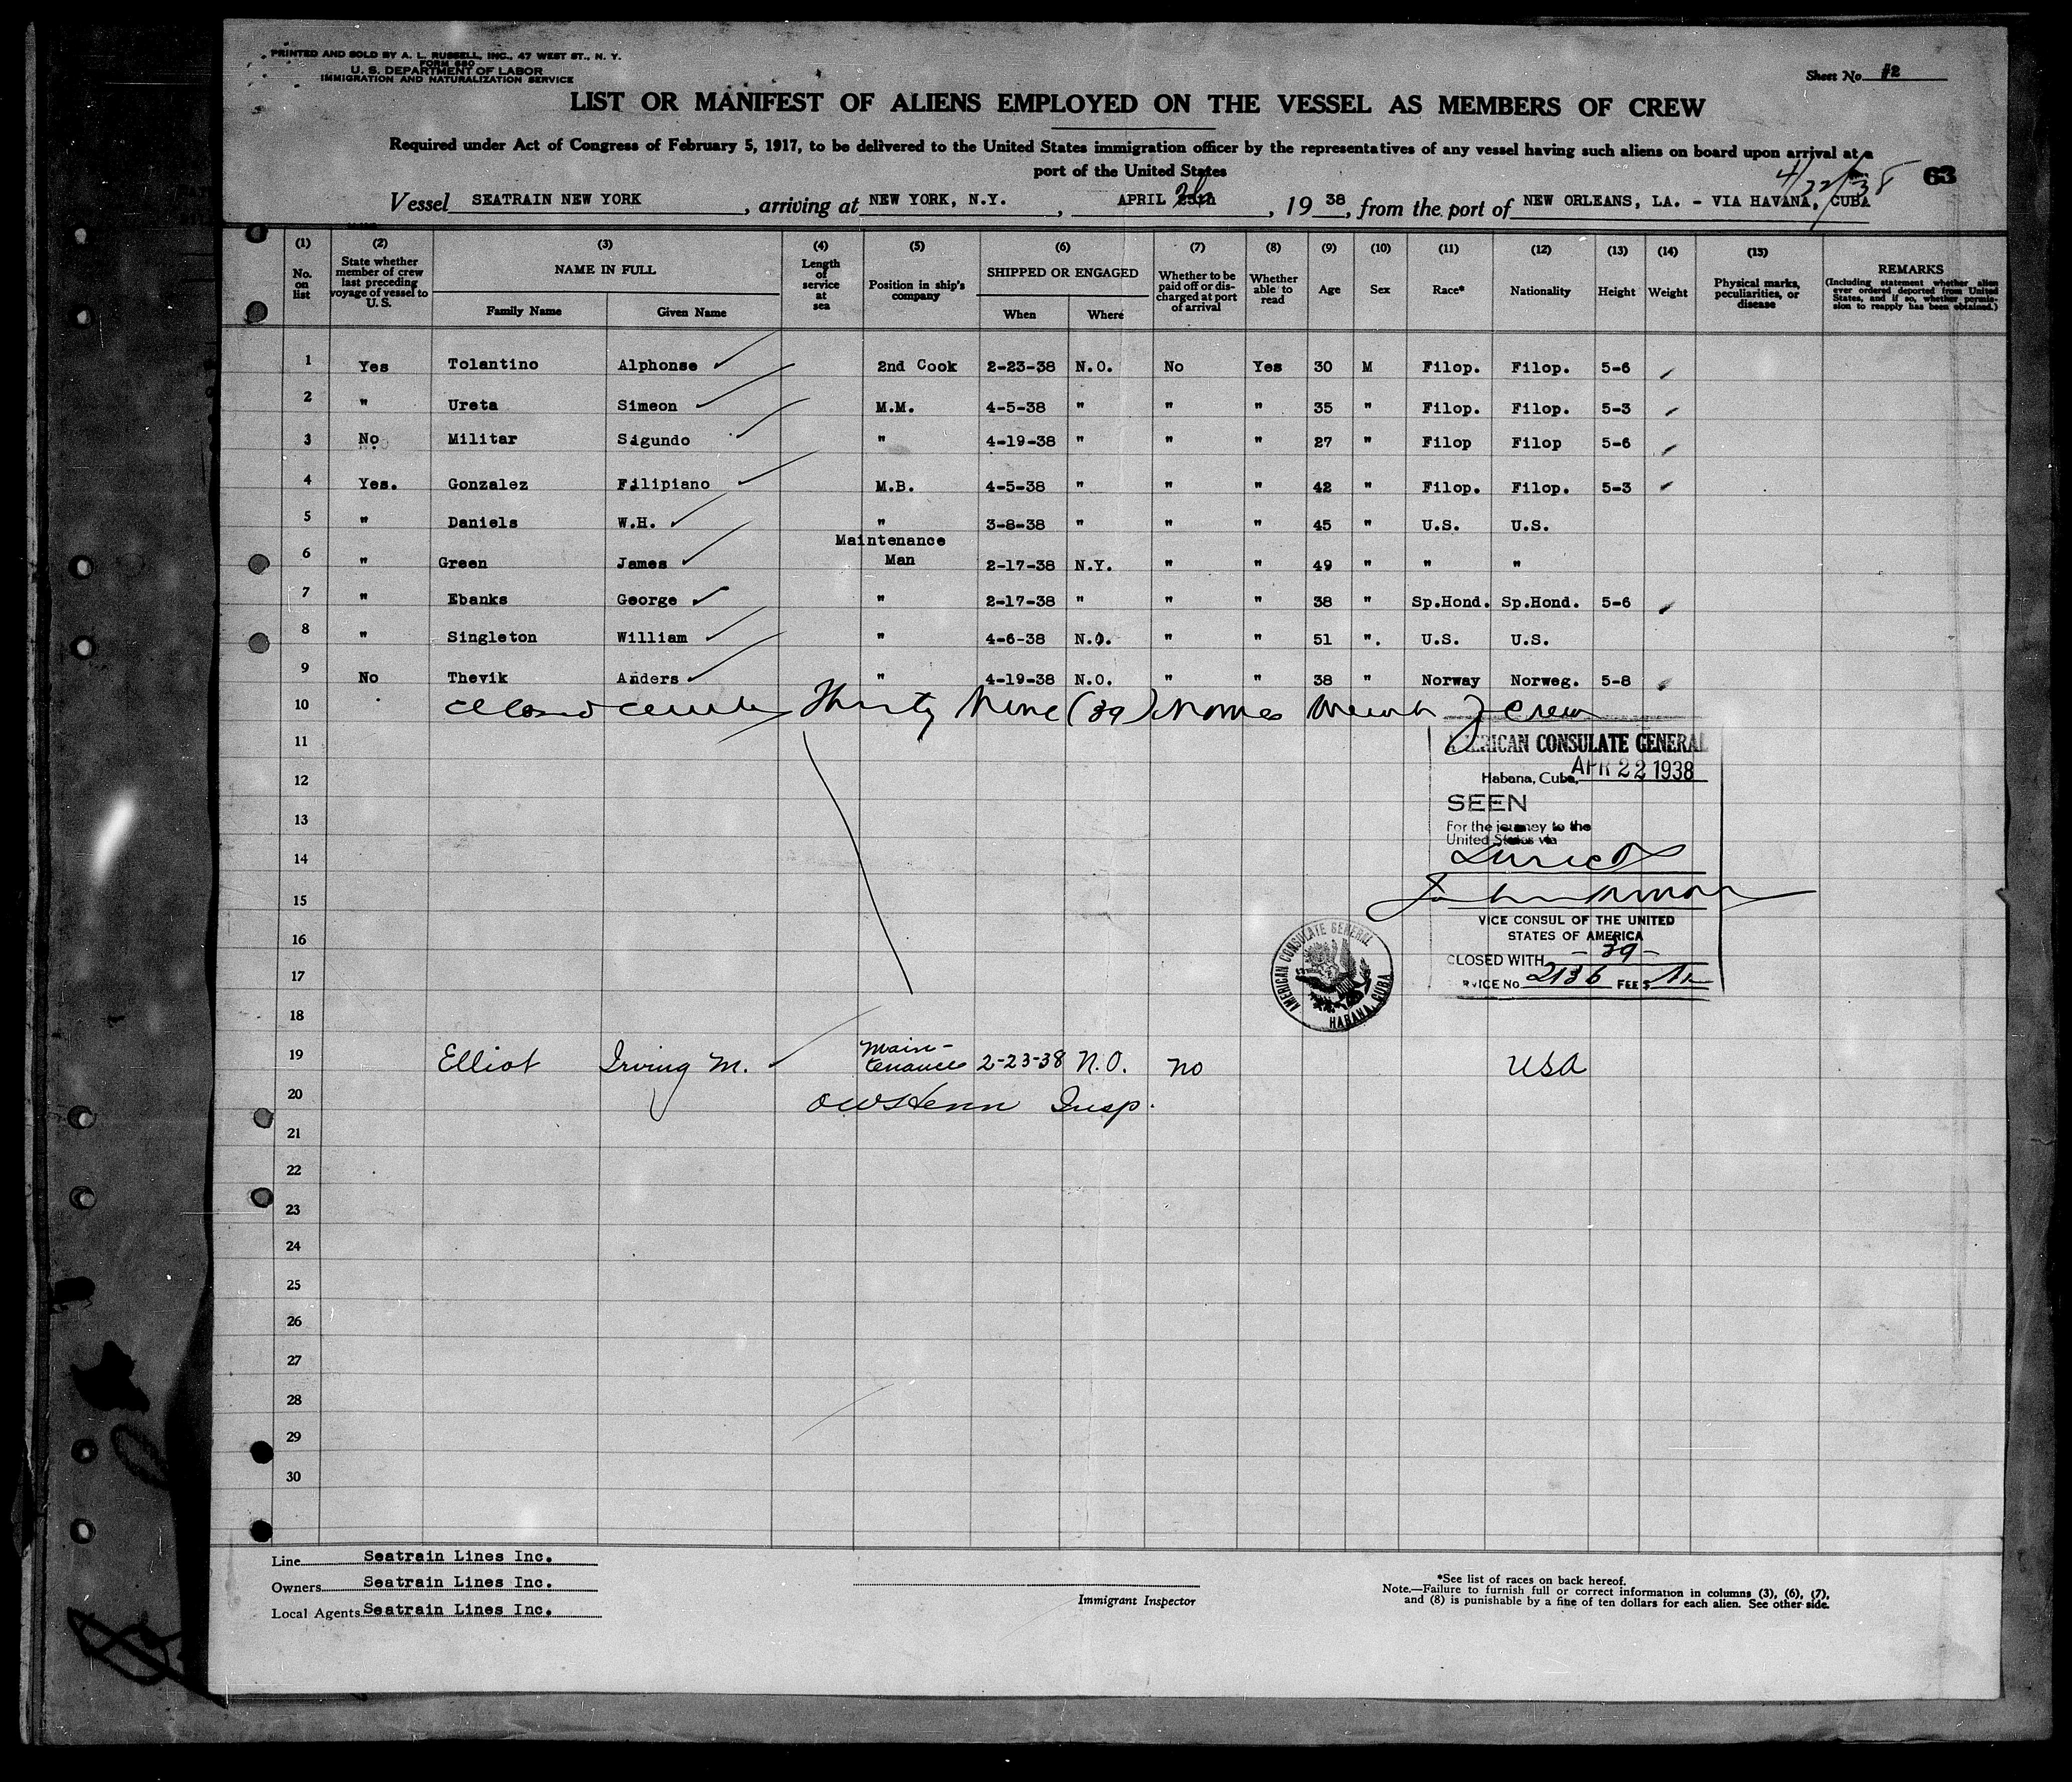 PRINTED AND SOLD BY A. L. RUSSELL, INC., 47 WEST ST., N. Y.
FORM 680
U. S. DEPARTMENT OF LABOR
IMMIGRATION AND NATURALIZATION SERVICE
Sheet No. #2
LIST OR MANIFEST OF ALIENS EMPLOYED ON THE VESSEL AS MEMBERS OF CREW
Required under Act of Congress of February 5, 1917, to be delivered to the United States immigration officer by the representatives of any vessel having such aliens on board upon arrival at a
port of the United States
4/22/38 63
Vessel SEATRAIN NEW YORK, arriving at NEW YORK, N.Y., APRIL, 19 38, from the port of NEW ORLEANS, LA. - VIA HAVANA, CUBA
(1) (2) (3) (4) (5) (6) (7) (8) (9) (10) (11) (12) (13) (14) (15)
No. on list
State whether member of crew last preceding voyage of vessel to U. S.
NAME IN FULL
Family Name Given Name
Length of service at sea
Position in ship's company
SHIPPED OR ENGAGED
When Where
Whether to be paid off or discharged at port of arrival
Whether able to read
Age
Sex
Race*
Nationality
Height
Weight
Physical marks, peculiarities, or disease
REMARKS
(Including statement whether alien ever ordered deported from United States, and if so, whether permission to reapply has been obtained.)
1 Yes Tolantino Alphonse 2nd Cook 2-23-38 N.O. No Yes 30 M Filop. Filop. 5-6
2 " Ureta Simeon M.M. 4-5-38 " " " 35 " Filop. Filop. 5-3
3 No Militar Sigundo " 4-19-38 " " " 27 " Filop Filop 5-6
4 Yes. Gonzalez Filipiano M.B. 4-5-38 " " " 42 " Filop. Filop. 5-3
5 " Daniels W.H. " 3-8-38 " " " 45 " U.S. U.S.
6 " Green James Maintenance Man 2-17-38 N.Y. " " 49 " " "
7 " Ebanks George " 2-17-38 " " " 38 " Sp.Hond. Sp.Hond. 5-6
8 " Singleton William " 4-6-38 N.O. " " 51 ". U.S. U.S.
9 No Thevik Anders " 4-19-38 N.O. " " 38 " Norway Norweg. 5-8
10 Thirty Nine (39) Names Crew
11
AMERICAN CONSULATE GENERAL
12
Habana, Cuba, APR 22 1938
SEEN
13
For the journey to the
United States via
14
Direct
15
VICE CONSUL OF THE UNITED
STATES OF AMERICA
16
CLOSED WITH -39-
17
SERVICE No. 2136 FEE $
AMERICAN CONSULATE GENERAL HABANA, CUBA
18
19 Elliot Irving M. Main-tenance 2-23-38 N.O. No USA
20 Insp.
21
22
23
24
25
26
27
28
29
30
Line Seatrain Lines Inc.
Owners Seatrain Lines Inc.
Local Agents Seatrain Lines Inc.
Immigrant Inspector
*See list of races on back hereof.
Note.—Failure to furnish full or correct information in columns (3), (6), (7),
and (8) is punishable by a fine of ten dollars for each alien. See other side.